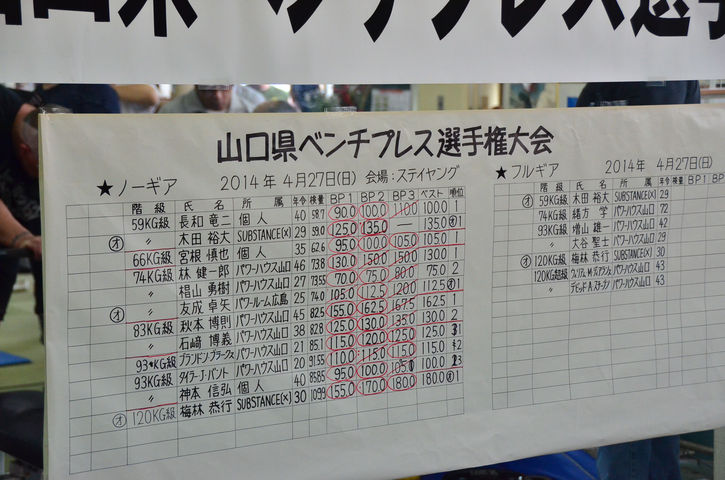 山口県ベンチプレス選手
山口県ベンチプレス選手権大会
★ノーギア 2014年 4月27日(日) 会場:ステイヤング
階級 氏名 所属 年令 検量 BP1 BP2 BP3 ベスト 順位
59KG級 長和 竜二 個人 40 58.7 90.0 100.0 110.0 100.0 1
オ 〃 木田 裕大 SUBSTANCE(X) 29 59.0 125.0 135.0 — 135.0 1
66KG級 宮根 慎也 個人 35 62.6 95.0 100.0 105.0 105.0 1
74KG級 林 健一郎 パワーハウス山口 46 73.8 130.0 150.0 150.0 130.0 1
〃 椙山 勇樹 パワーハウス山口 27 73.55 70.0 75.0 80.0 75.0 2
〃 友成 卓矢 パワールーム広島 25 74.0 105.0 112.5 120.0 112.5
オ 83KG級 秋本 博則 パワーハウス山口 45 82.5 155.0 162.5 167.5 162.5 1
〃 石崎 博義 パワーハウス山口 38 82.8 125.0 130.0 135.0 130.0 2
〃 ブランドン・ブラーシュ パワーハウス山口 21 85.1 115.0 120.0 125.0 125.0
93KG級 タイラー・J・バント パワーハウス山口 20 91.55 110.0 115.0 115.0 115.0
93KG級 神本 信弘 個人 40 85.85 95.0 100.0 105.0 100.0
オ 120KG級 梅林 恭行 SUBSTANCE(X) 30 109.9 155.0 170.0 180.0 180.0 1
★フルギア 2014年 4月27日(日)
階級 氏名 所属 年令 検量 BP1 BP
オ 59KG級 木田 裕大 SUBSTANCE(X) 29
74KG級 緒方 学 パワーハウス山口 72
93KG級 増山 雄一 パワーハウス山口 42
〃 大谷 聖士 パワーハウス山口 29
オ 120KG級 梅林 恭行 SUBSTANCE(X) 30
120KG超級 パワーハウス山口 43
〃 パワーハウス山口 43